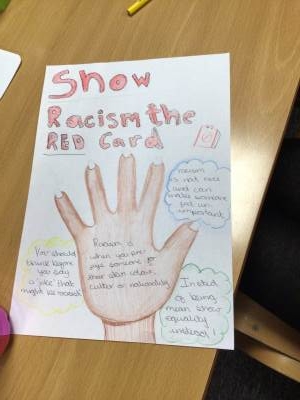 Show
Racism the
RED Card
racism
is not nice
and can
make someone
feel un-
important
Racism is
when you are
judge someone for
their skin colour,
culter or nationality
You should
think before
you say
a joke that
might be racist
Insted
of being
mean show
equality
instead!